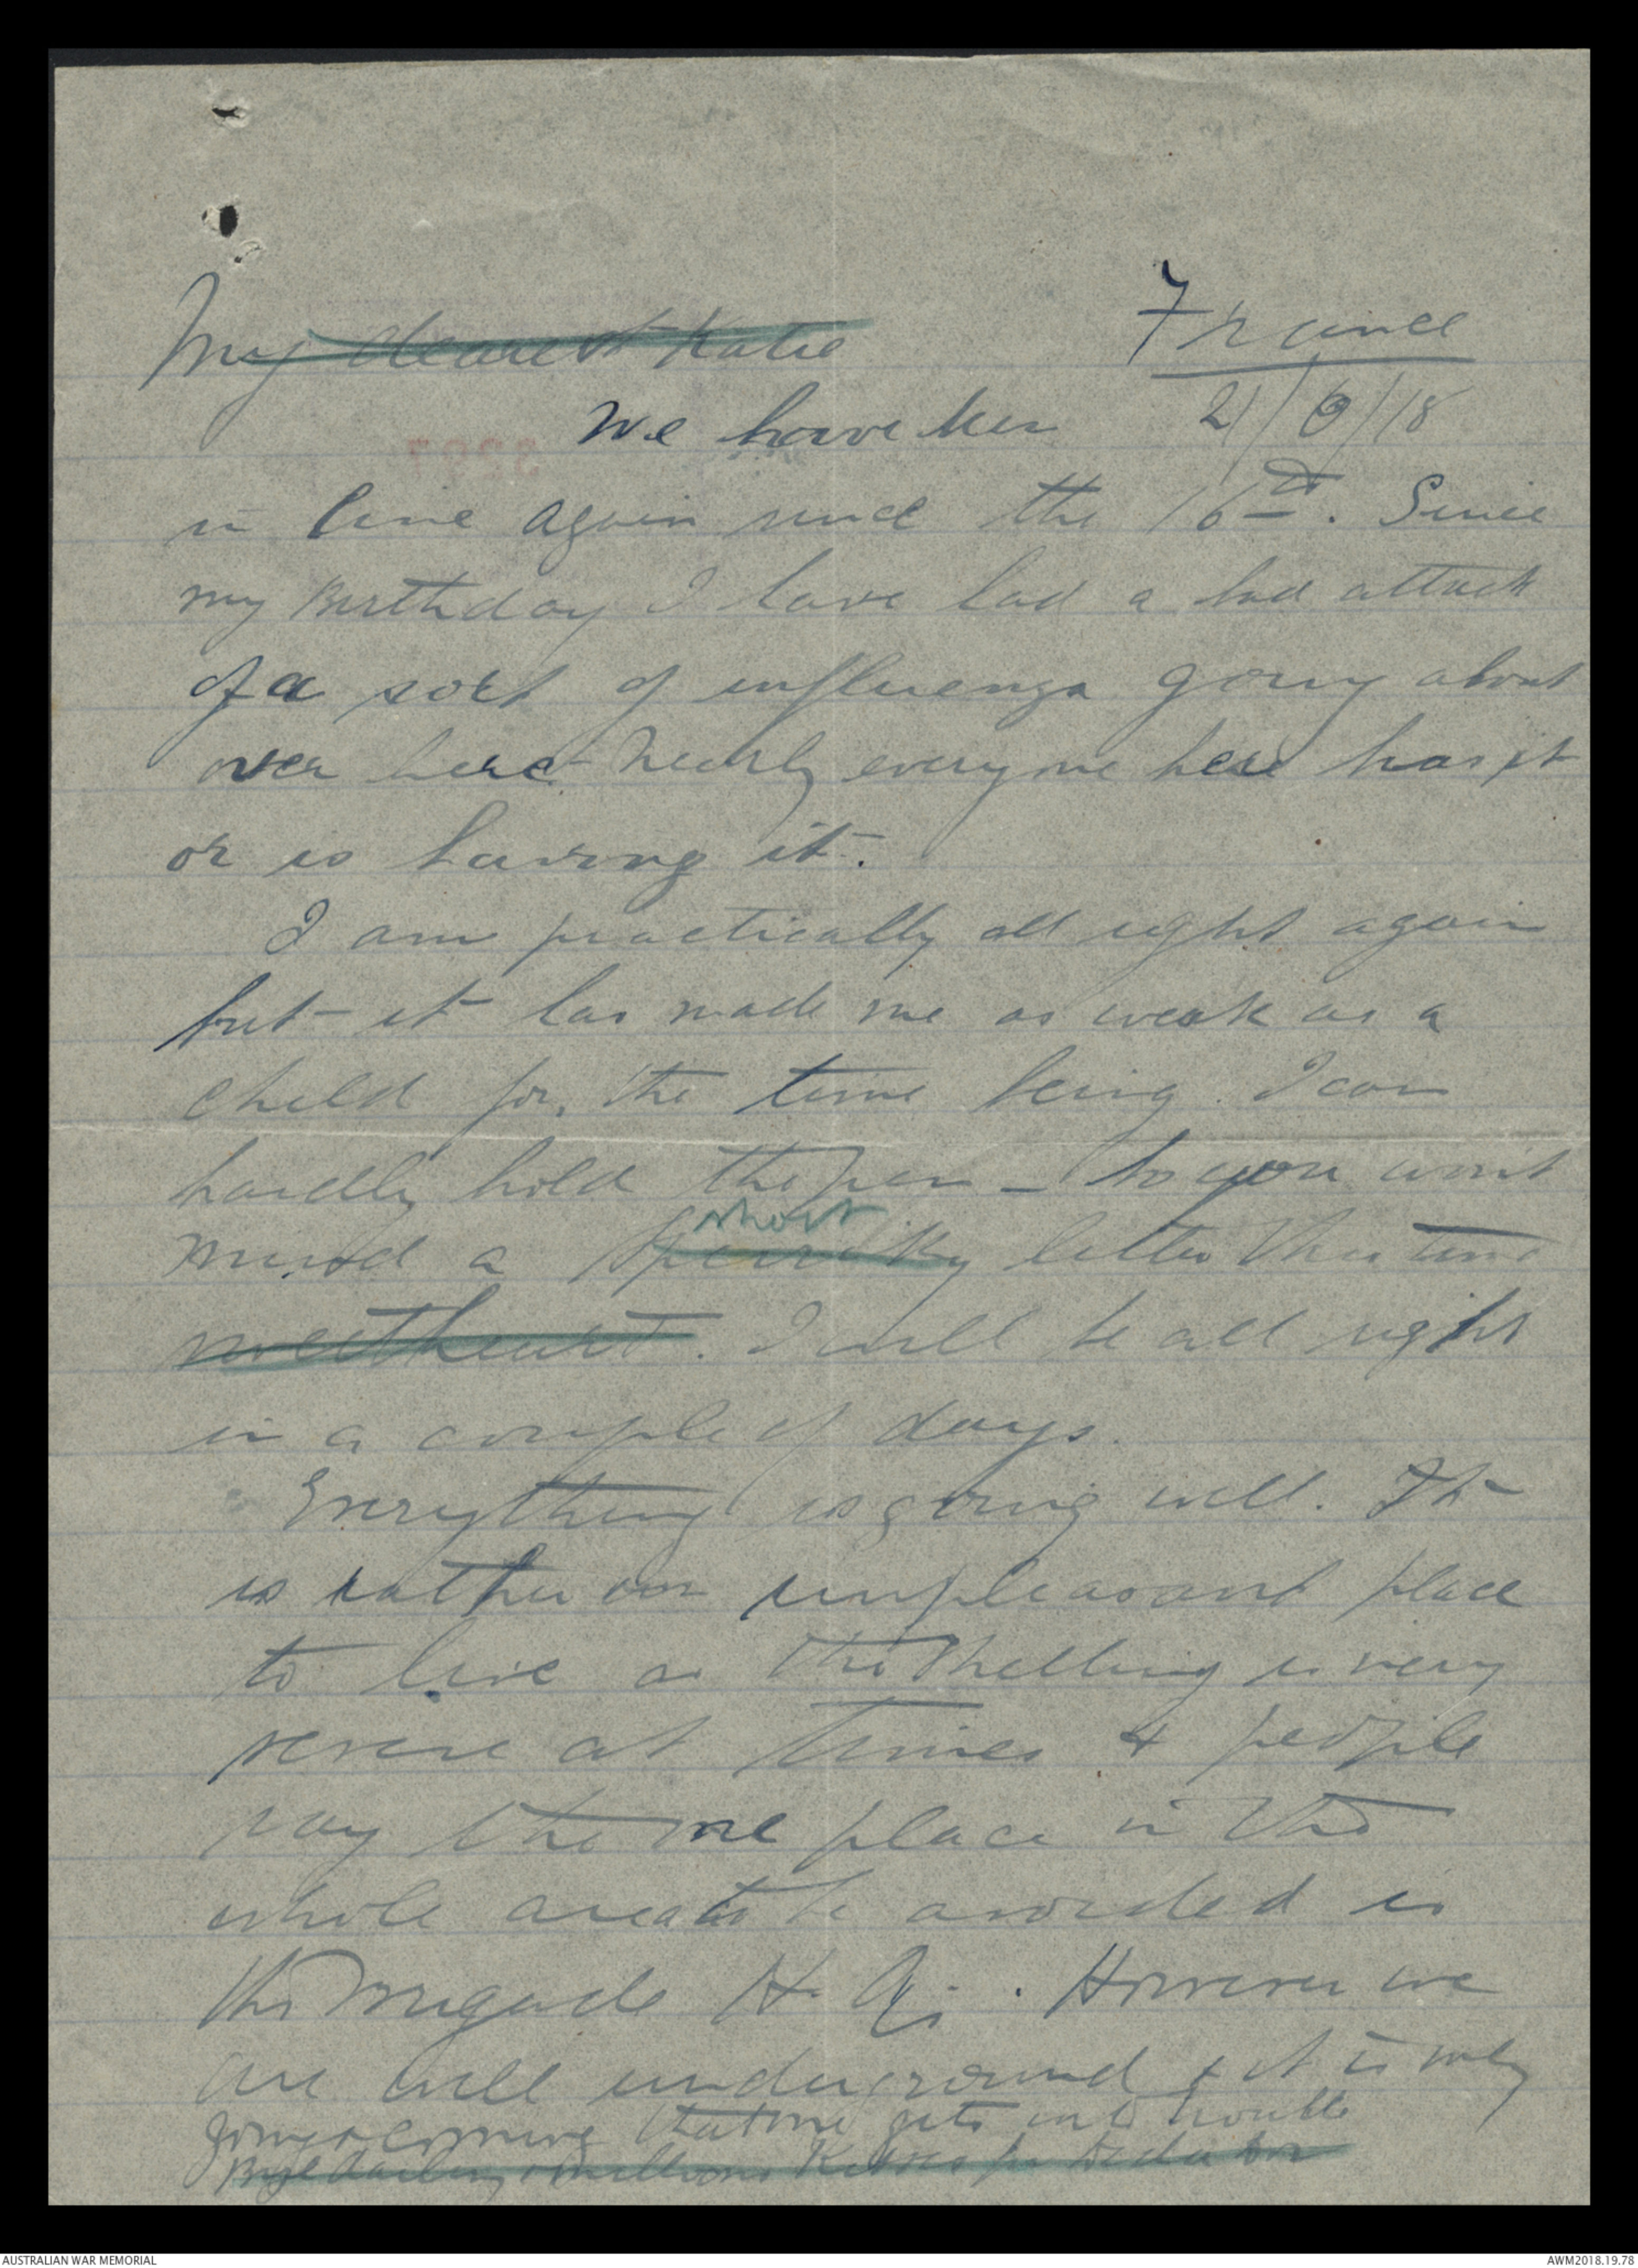 My dearest Katie
France
21/6/18
We have been
in line again since the 16th. Since
my Birthday I have had a bad attack
of a sort of influenza going about
over here Nearly everyone here has it
or is having it.
I am practically all right again
but it has made me as weak as a
child for the time being. I can
hardly hold the pen – so you won't
short
mind a letter this time
sweetheart. I will be all right
in a couple of days.
Everything is going well. It
is rather an unpleasant place
to live as the shelling is very
severe at times & people
say the one place in the
whole area to be avoided is
the Brigade H. Q. However we
are well underground & it is only
going & coming that one gets into trouble
Bye darling millions Kisses
AUSTRALIAN WAR MEMORIAL
AWM2018.19.78